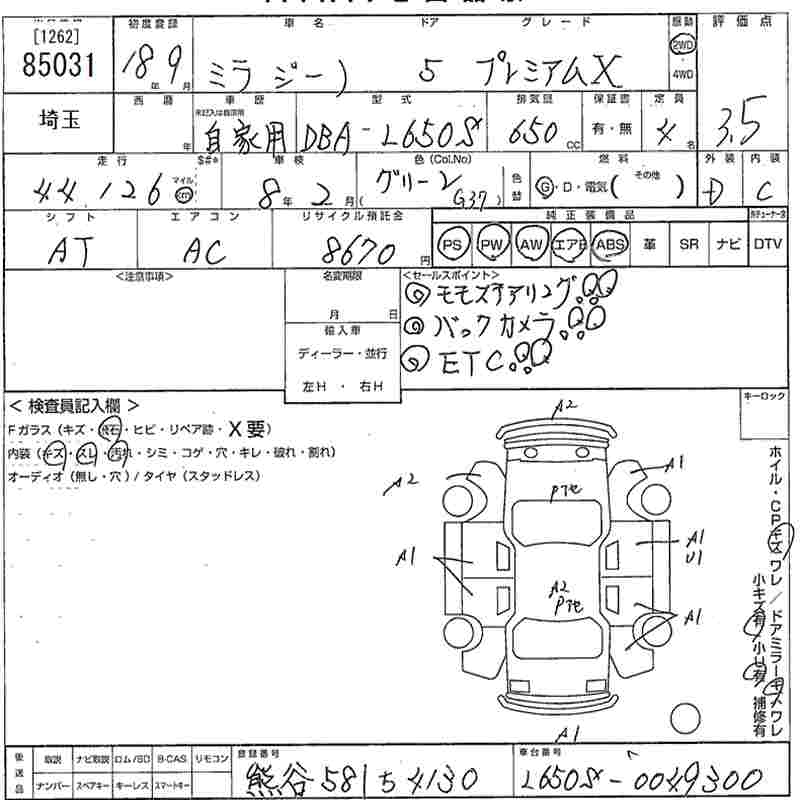 [1262]
85031
初度登録 車名 ドア グレード 駆動 評価点
18年 9月 ミラジーノ 5 プレミアムX 2WD 4WD
3.5
埼玉
西暦 車歴 型式 排気量 保証書 定員
年 未記入は自家用 自家用 DBA-L650S 650 CC 有・無 4名
走行 $#* 車検 色(Col.No) 色替 燃料 外装 内装
44,126 マイル km 8年 2月 グリーン (G37) G・D・電気( その他 ) D C
シフト エアコン リサイクル預託金 純正装備品
AT AC 8670円 PS PW AW エアB ABS 革 SR ナビ DTV
<注意事項> 名変期限 <セールスポイント>
月 日
輸入車
ディーラー・並行
左H ・ 右H
◎モモステアリング!!
◎バックカメラ!!
◎ETC!!
<検査員記入欄> キーロック
Fガラス(キズ・飛石・ヒビ・リペア跡・X要)
内装(キズ・スレ・汚れ・シミ・コゲ・穴・キレ・破れ・割れ)
オーディオ(無し・穴)/タイヤ(スタッドレス)
A2
A2 A1
Pアセ
A1 A1
U1
A2
Pアセ A1
A1
ホイル・CPキズ ワレ/ドアミラーキズ ワレ
小キズ有/小U有/補修有
後送品 取説 ナビ取説 ロム/SD B-CAS リモコン 登録番号 車台番号
ナンバー スペアキー キーレス スマートキー 熊谷 581 ち 4130 L650S-0049300